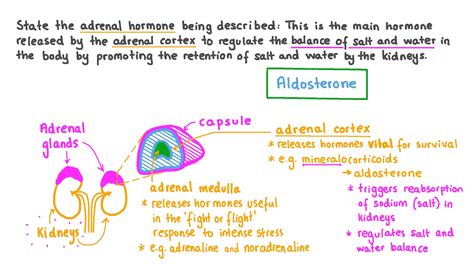 State the adrenal hormone being described: This is the main hormone
released by the adrenal cortex to regulate the balance of salt and water in
the body by promoting the retention of salt and water by the kidneys.
Aldosterone
Adrenal
glands
Kidneys
capsule
adrenal medulla
* releases hormones useful
in the 'fight or flight'
response to intense stress
* e.g. adrenaline and noradrenaline
adrenal cortex
* releases hormones vital for survival
* e.g. mineralocorticoids
→ aldosterone
* triggers reabsorption
of sodium (salt) in
kidneys
* regulates salt and
water balance